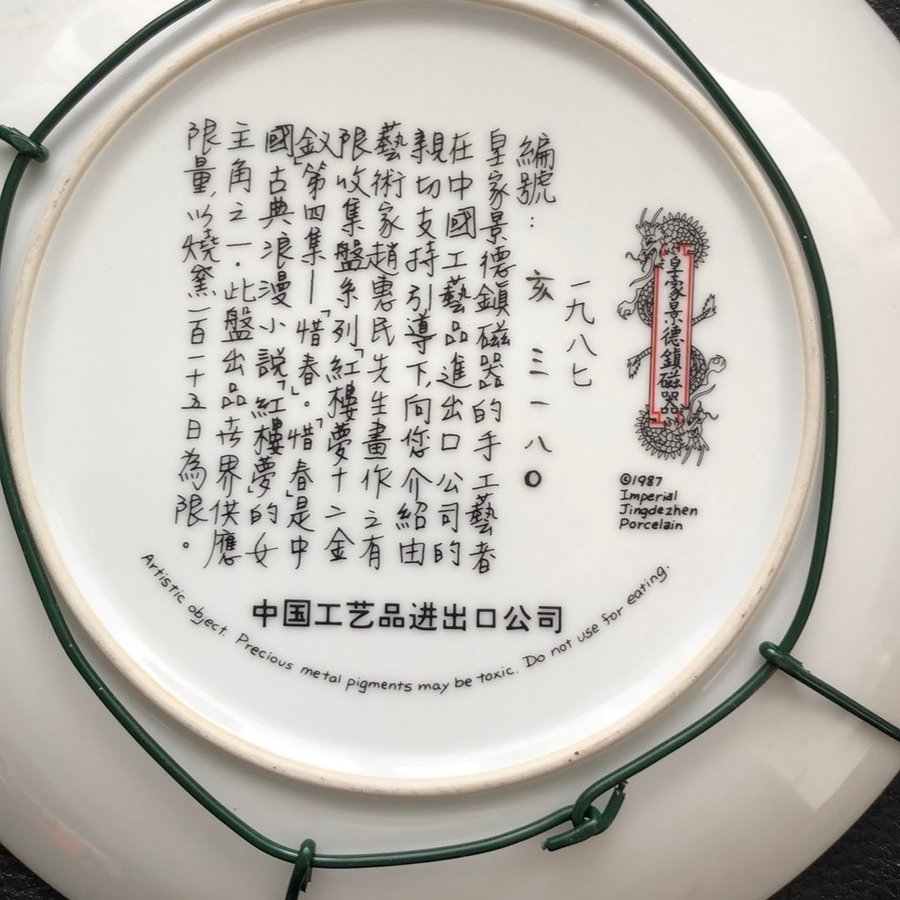 皇家景德鎮磁器
©1987
Imperial
Jingdezhen
Porcelain
一九八七
編號: 亥 三一八0
皇家景德鎮磁器的手工藝者
在中國工藝品進出口公司的
親切支持引導下,向您介紹由
藝術家趙惠民先生畫作之有
限收集盤系列「紅樓夢十二金
釵」第四集—「惜春」。「惜春」是中
國古典浪漫小說「紅樓夢」的女
主角之一.此盤出品世界供應
限量,以燒窯一百一十五日為限。
中国工艺品进出口公司
Artistic object. Precious metal pigments may be toxic. Do not use for eating.